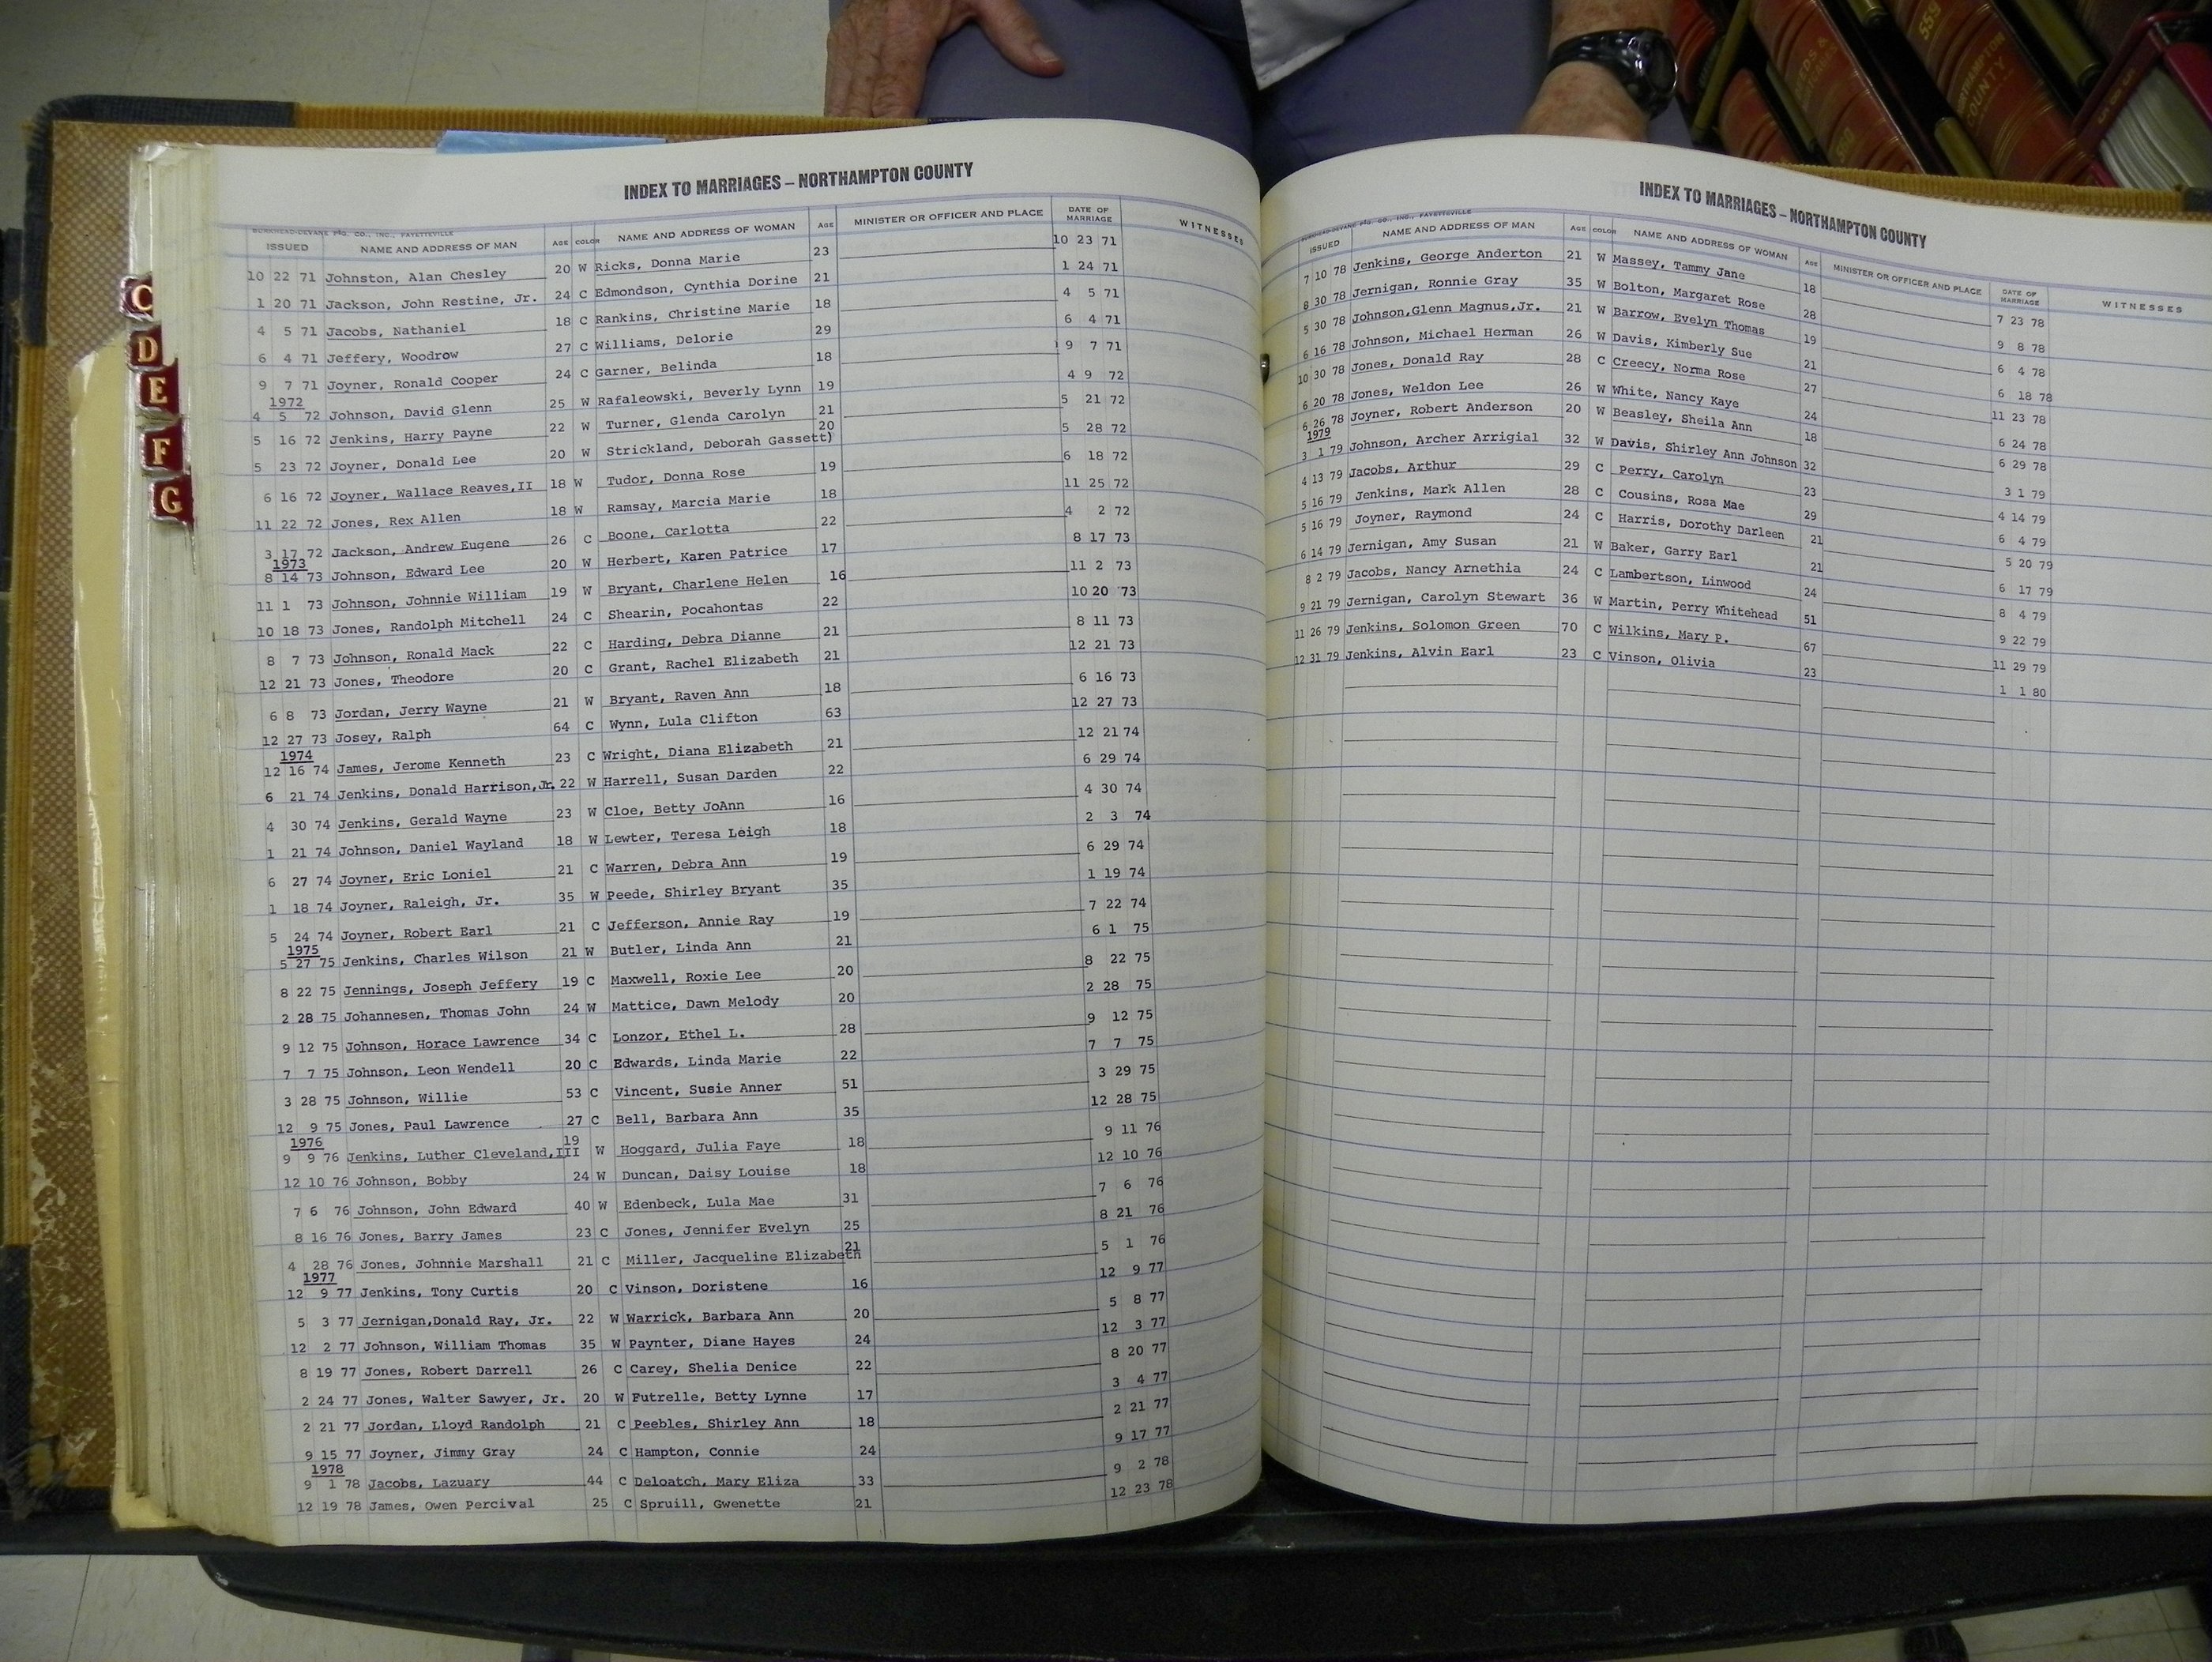 INDEX TO MARRIAGES – NORTHAMPTON COUNTY
BURKHEAD-DEVANE P&G. CO., INC., FAYETTEVILLE
ISSUED NAME AND ADDRESS OF MAN AGE COLOR NAME AND ADDRESS OF WOMAN AGE MINISTER OR OFFICER AND PLACE DATE OF MARRIAGE WITNESSES
10 22 71 Johnston, Alan Chesley 20 W Ricks, Donna Marie 23 10 23 71
1 20 71 Jackson, John Restine, Jr. 24 C Edmondson, Cynthia Dorine 21 1 24 71
4 5 71 Jacobs, Nathaniel 18 C Rankins, Christine Marie 18 4 5 71
6 4 71 Jeffery, Woodrow 27 C Williams, Delorie 29 6 4 71
9 7 71 Joyner, Ronald Cooper 24 C Garner, Belinda 18 9 7 71
1972
4 5 72 Johnson, David Glenn 25 W Rafaleowski, Beverly Lynn 19 4 9 72
5 16 72 Jenkins, Harry Payne 22 W Turner, Glenda Carolyn 21 5 21 72
5 23 72 Joyner, Donald Lee 20 W Strickland, Deborah Gassett) 20 5 28 72
6 16 72 Joyner, Wallace Reaves,II 18 W Tudor, Donna Rose 19 6 18 72
11 22 72 Jones, Rex Allen 18 W Ramsay, Marcia Marie 18 11 25 72
3 17 72 Jackson, Andrew Eugene 26 C Boone, Carlotta 22 4 2 72
1973
8 14 73 Johnson, Edward Lee 20 W Herbert, Karen Patrice 17 8 17 73
11 1 73 Johnson, Johnnie William 19 W Bryant, Charlene Helen 16 11 2 73
10 18 73 Jones, Randolph Mitchell 24 C Shearin, Pocahontas 22 10 20 73
8 7 73 Johnson, Ronald Mack 22 C Harding, Debra Dianne 21 8 11 73
12 21 73 Jones, Theodore 20 C Grant, Rachel Elizabeth 21 12 21 73
6 8 73 Jordan, Jerry Wayne 21 W Bryant, Raven Ann 18 6 16 73
12 27 73 Josey, Ralph 64 C Wynn, Lula Clifton 63 12 27 73
1974
12 16 74 James, Jerome Kenneth 23 C Wright, Diana Elizabeth 21 12 21 74
6 21 74 Jenkins, Donald Harrison,Jr. 22 W Harrell, Susan Darden 22 6 29 74
4 30 74 Jenkins, Gerald Wayne 23 W Cloe, Betty JoAnn 16 4 30 74
1 21 74 Johnson, Daniel Wayland 18 W Lewter, Teresa Leigh 18 2 3 74
6 27 74 Joyner, Eric Loniel 21 C Warren, Debra Ann 19 6 29 74
1 18 74 Joyner, Raleigh, Jr. 35 W Peede, Shirley Bryant 35 1 19 74
5 24 74 Joyner, Robert Earl 21 C Jefferson, Annie Ray 19 7 22 74
1975
5 27 75 Jenkins, Charles Wilson 21 W Butler, Linda Ann 21 6 1 75
8 22 75 Jennings, Joseph Jeffery 19 C Maxwell, Roxie Lee 20 8 22 75
2 28 75 Johannesen, Thomas John 24 W Mattice, Dawn Melody 20 2 28 75
9 12 75 Johnson, Horace Lawrence 34 C Lonzor, Ethel L. 28 9 12 75
7 7 75 Johnson, Leon Wendell 20 C Edwards, Linda Marie 22 7 7 75
3 28 75 Johnson, Willie 53 C Vincent, Susie Anner 51 3 29 75
12 9 75 Jones, Paul Lawrence 27 C Bell, Barbara Ann 35 12 28 75
1976
9 9 76 Jenkins, Luther Cleveland,III 19 W Hoggard, Julia Faye 18 9 11 76
12 10 76 Johnson, Bobby 24 W Duncan, Daisy Louise 18 12 10 76
7 6 76 Johnson, John Edward 40 W Edenbeck, Lula Mae 31 7 6 76
8 16 76 Jones, Barry James 23 C Jones, Jennifer Evelyn 25 8 21 76
4 28 76 Jones, Johnnie Marshall 21 C Miller, Jacqueline Elizabeth 21 5 1 76
1977
12 9 77 Jenkins, Tony Curtis 20 C Vinson, Doristene 16 12 9 77
5 3 77 Jernigan,Donald Ray, Jr. 22 W Warrick, Barbara Ann 20 5 8 77
12 2 77 Johnson, William Thomas 35 W Paynter, Diane Hayes 24 12 3 77
8 19 77 Jones, Robert Darrell 26 C Carey, Shelia Denice 22 8 20 77
2 24 77 Jones, Walter Sawyer, Jr. 20 W Futrelle, Betty Lynne 17 3 4 77
2 21 77 Jordan, Lloyd Randolph 21 C Peebles, Shirley Ann 18 2 21 77
9 15 77 Joyner, Jimmy Gray 24 C Hampton, Connie 24 9 17 77
1978
9 1 78 Jacobs, Lazuary 44 C Deloatch, Mary Eliza 33 9 2 78
12 19 78 James, Owen Percival 25 C Spruill, Gwenette 21 12 23 78
C
D
E
F
G
INDEX TO MARRIAGES – NORTHAMPTON COUNTY
BURKHEAD-DEVANE P&G. CO., INC., FAYETTEVILLE
ISSUED NAME AND ADDRESS OF MAN AGE COLOR NAME AND ADDRESS OF WOMAN AGE MINISTER OR OFFICER AND PLACE DATE OF MARRIAGE WITNESSES
7 10 78 Jenkins, George Anderton 21 W Massey, Tammy Jane 18 7 23 78
8 30 78 Jernigan, Ronnie Gray 35 W Bolton, Margaret Rose 28 9 8 78
5 30 78 Johnson,Glenn Magnus,Jr. 21 W Barrow, Evelyn Thomas 19 6 4 78
6 16 78 Johnson, Michael Herman 26 W Davis, Kimberly Sue 21 6 18 78
10 30 78 Jones, Donald Ray 28 C Creecy, Norma Rose 27 11 23 78
6 20 78 Jones, Weldon Lee 26 W White, Nancy Kaye 24 6 24 78
6 26 78 Joyner, Robert Anderson 20 W Beasley, Sheila Ann 18 6 29 78
1979
3 1 79 Johnson, Archer Arrigial 32 W Davis, Shirley Ann Johnson 32 3 1 79
4 13 79 Jacobs, Arthur 29 C Perry, Carolyn 23 4 14 79
5 16 79 Jenkins, Mark Allen 28 C Cousins, Rosa Mae 29 6 4 79
5 16 79 Joyner, Raymond 24 C Harris, Dorothy Darleen 21 5 20 79
6 14 79 Jernigan, Amy Susan 21 W Baker, Garry Earl 21 6 17 79
8 2 79 Jacobs, Nancy Arnethia 24 C Lambertson, Linwood 24 8 4 79
9 21 79 Jernigan, Carolyn Stewart 36 W Martin, Perry Whitehead 51 9 22 79
11 26 79 Jenkins, Solomon Green 70 C Wilkins, Mary P. 67 11 29 79
12 31 79 Jenkins, Alvin Earl 23 C Vinson, Olivia 23 1 1 80
DEEDS &
550
559
NORTHAMPTON
COUNTY